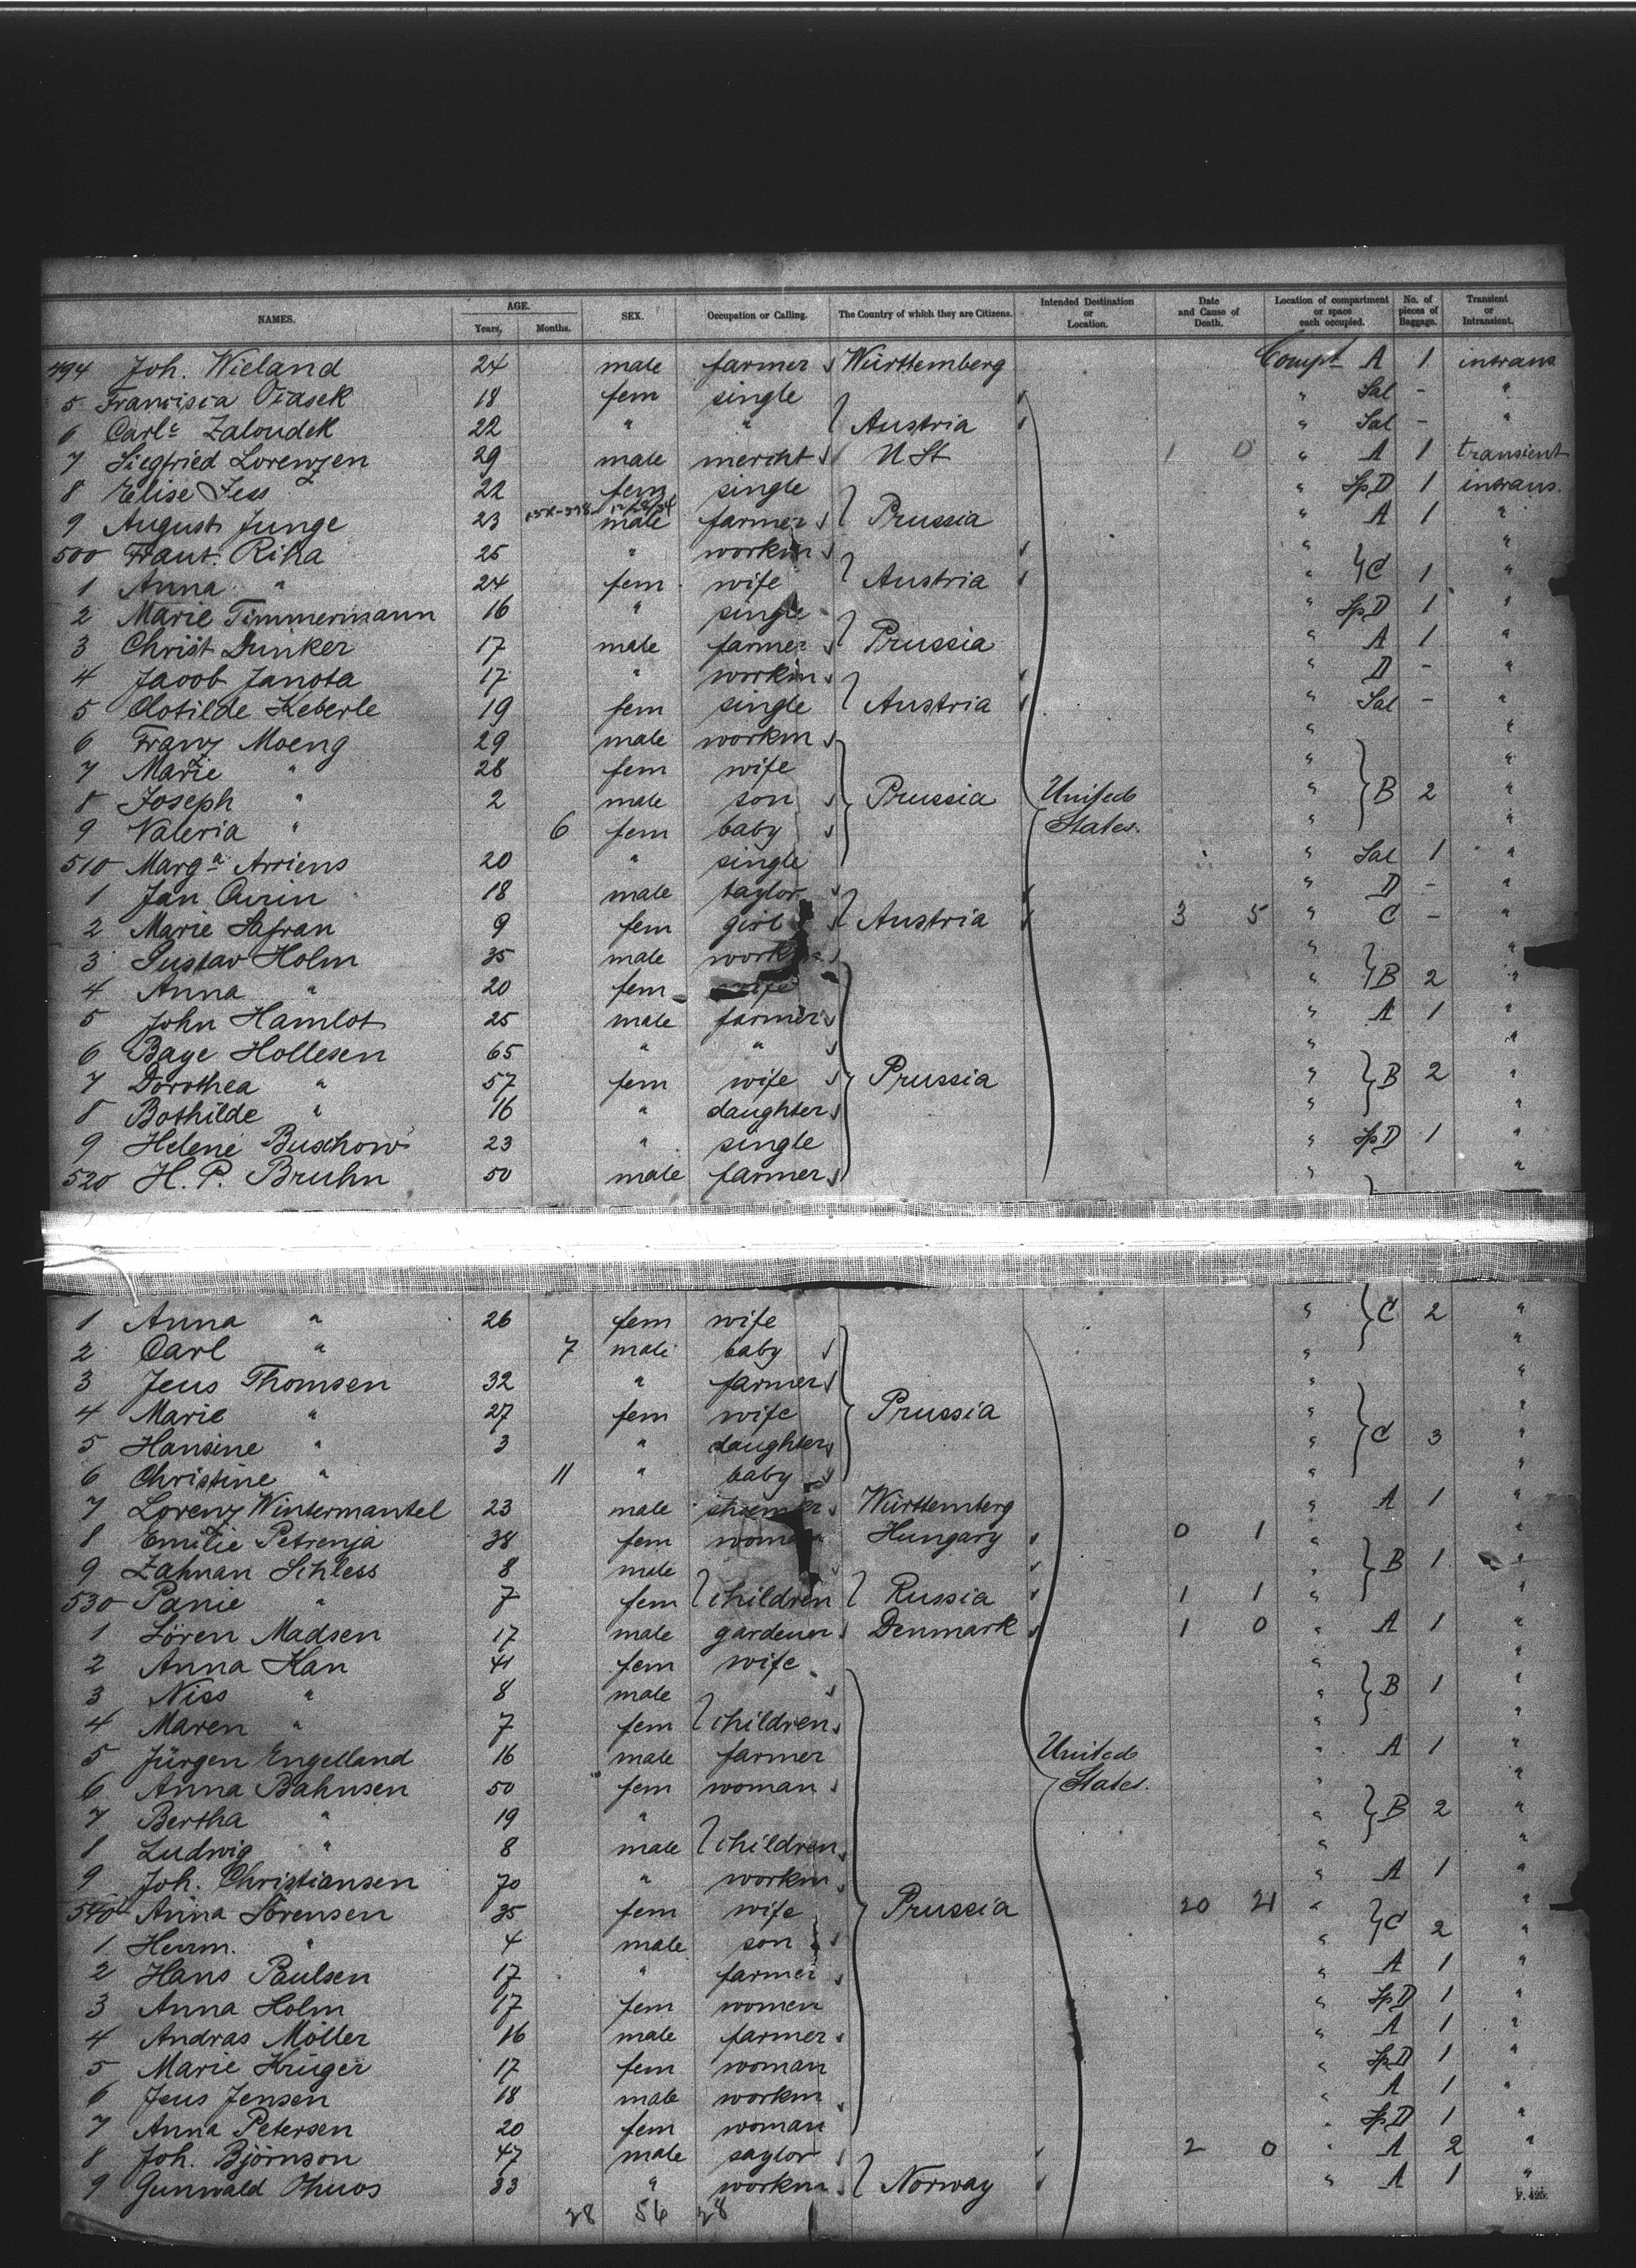 NAMES. AGE. Years, Months. SEX. Occupation or Calling. The Country of which they are Citizens. Intended Destination or Location. Date and Cause of Death. Location of compartment or space each occupied. No. of pieces of Baggage. Transient or Intransient.
494 Joh. Wieland 24 male farmer Württemberg Compt A 1 intrans
5 Francisca 18 fem single " Sal - "
6 Carla Zaloudek 22 " " Austria " Sal - "
7 Siegfried Lorenzen 29 male mercht U St 1 0 " A 1 transient
8 Elise Jess 22 fem single " Sp D 1 intrans.
9 August Junge 23 male farmer Prussia " A 1 "
500 Frant. Riha 25 " workm " "
1 Anna " 24 fem wife Austria " C 1 "
2 Marie Timmermann 16 " single " Sp D 1 "
3 Christ Dunker 17 male farmer Prussia " A 1 "
4 Jacob Janota 17 " workm " D - "
5 Clotilde Keberle 19 fem single Austria " Sal - "
6 Franz Moeng 29 male workm " "
7 Marie " 28 fem wife " "
8 Joseph " 2 male son Prussia United " B 2 "
9 Valeria " 6 fem baby States. " "
510 Marga Arriens 20 " single " Sal 1 "
1 Jan 18 male taylor " D - "
2 Marie Safran 9 fem girl Austria 3 5 " C - "
3 Gustav Holm 35 male workm " "
4 Anna " 20 fem wife " B 2 "
5 John Hamlot 25 male farmer " A 1 "
6 Baye Hollesen 65 " " " "
7 Dorothea " 57 fem wife Prussia " B 2 "
8 Bothilde " 16 " daughter " "
9 Helene Buschow 23 " single " Sp D 1 "
520 H. P. Bruhn 50 male farmer " "
1 Anna " 26 fem wife " C 2 "
2 Carl " 7 male baby " "
3 Jens Thomsen 32 " farmer " "
4 Marie " 27 fem wife Prussia " "
5 Hansine " 3 " daughter " C 3 "
6 Christine " 11 " baby " "
7 Lorenz Wintermantel 23 male Württemberg " A 1 "
8 Emilie Petrenja 38 fem woman Hungary 0 1 " "
9 Zahnan Schless 8 male " B 1 "
530 Panie " 7 fem children Russia 1 1 " "
1 Sören Madsen 17 male gardener Denmark 1 0 " A 1 "
2 Anna Kan 41 fem wife " "
3 Niss " 8 male " B 1 "
4 Maren " 7 fem children " "
5 Jürgen Engelland 16 male farmer United " A 1 "
6 Anna Bahnsen 50 fem woman States. " "
7 Bertha " 19 " " B 2 "
8 Ludwig " 8 male children " "
9 Joh. Christiansen 70 " workm " A 1 "
540 Anna Sörensen 35 fem wife Prussia 20 21 " "
1 Herrm. " 4 male son " C 2 "
2 Hans Paulsen 17 " farmer " A 1 "
3 Anna Holm 17 fem women " Sp D 1 "
4 Andras Möller 16 male farmer " A 1 "
5 Marie Krüger 17 fem woman " Sp D 1 "
6 Jens Jensen 18 male workm " A 1 "
7 Anna Petersen 20 fem woman " Sp D 1 "
8 Joh. Björnson 47 male saylor 2 0 " A 2 "
9 Gunwald 33 " workm Norway " A 1 "
28 56 28